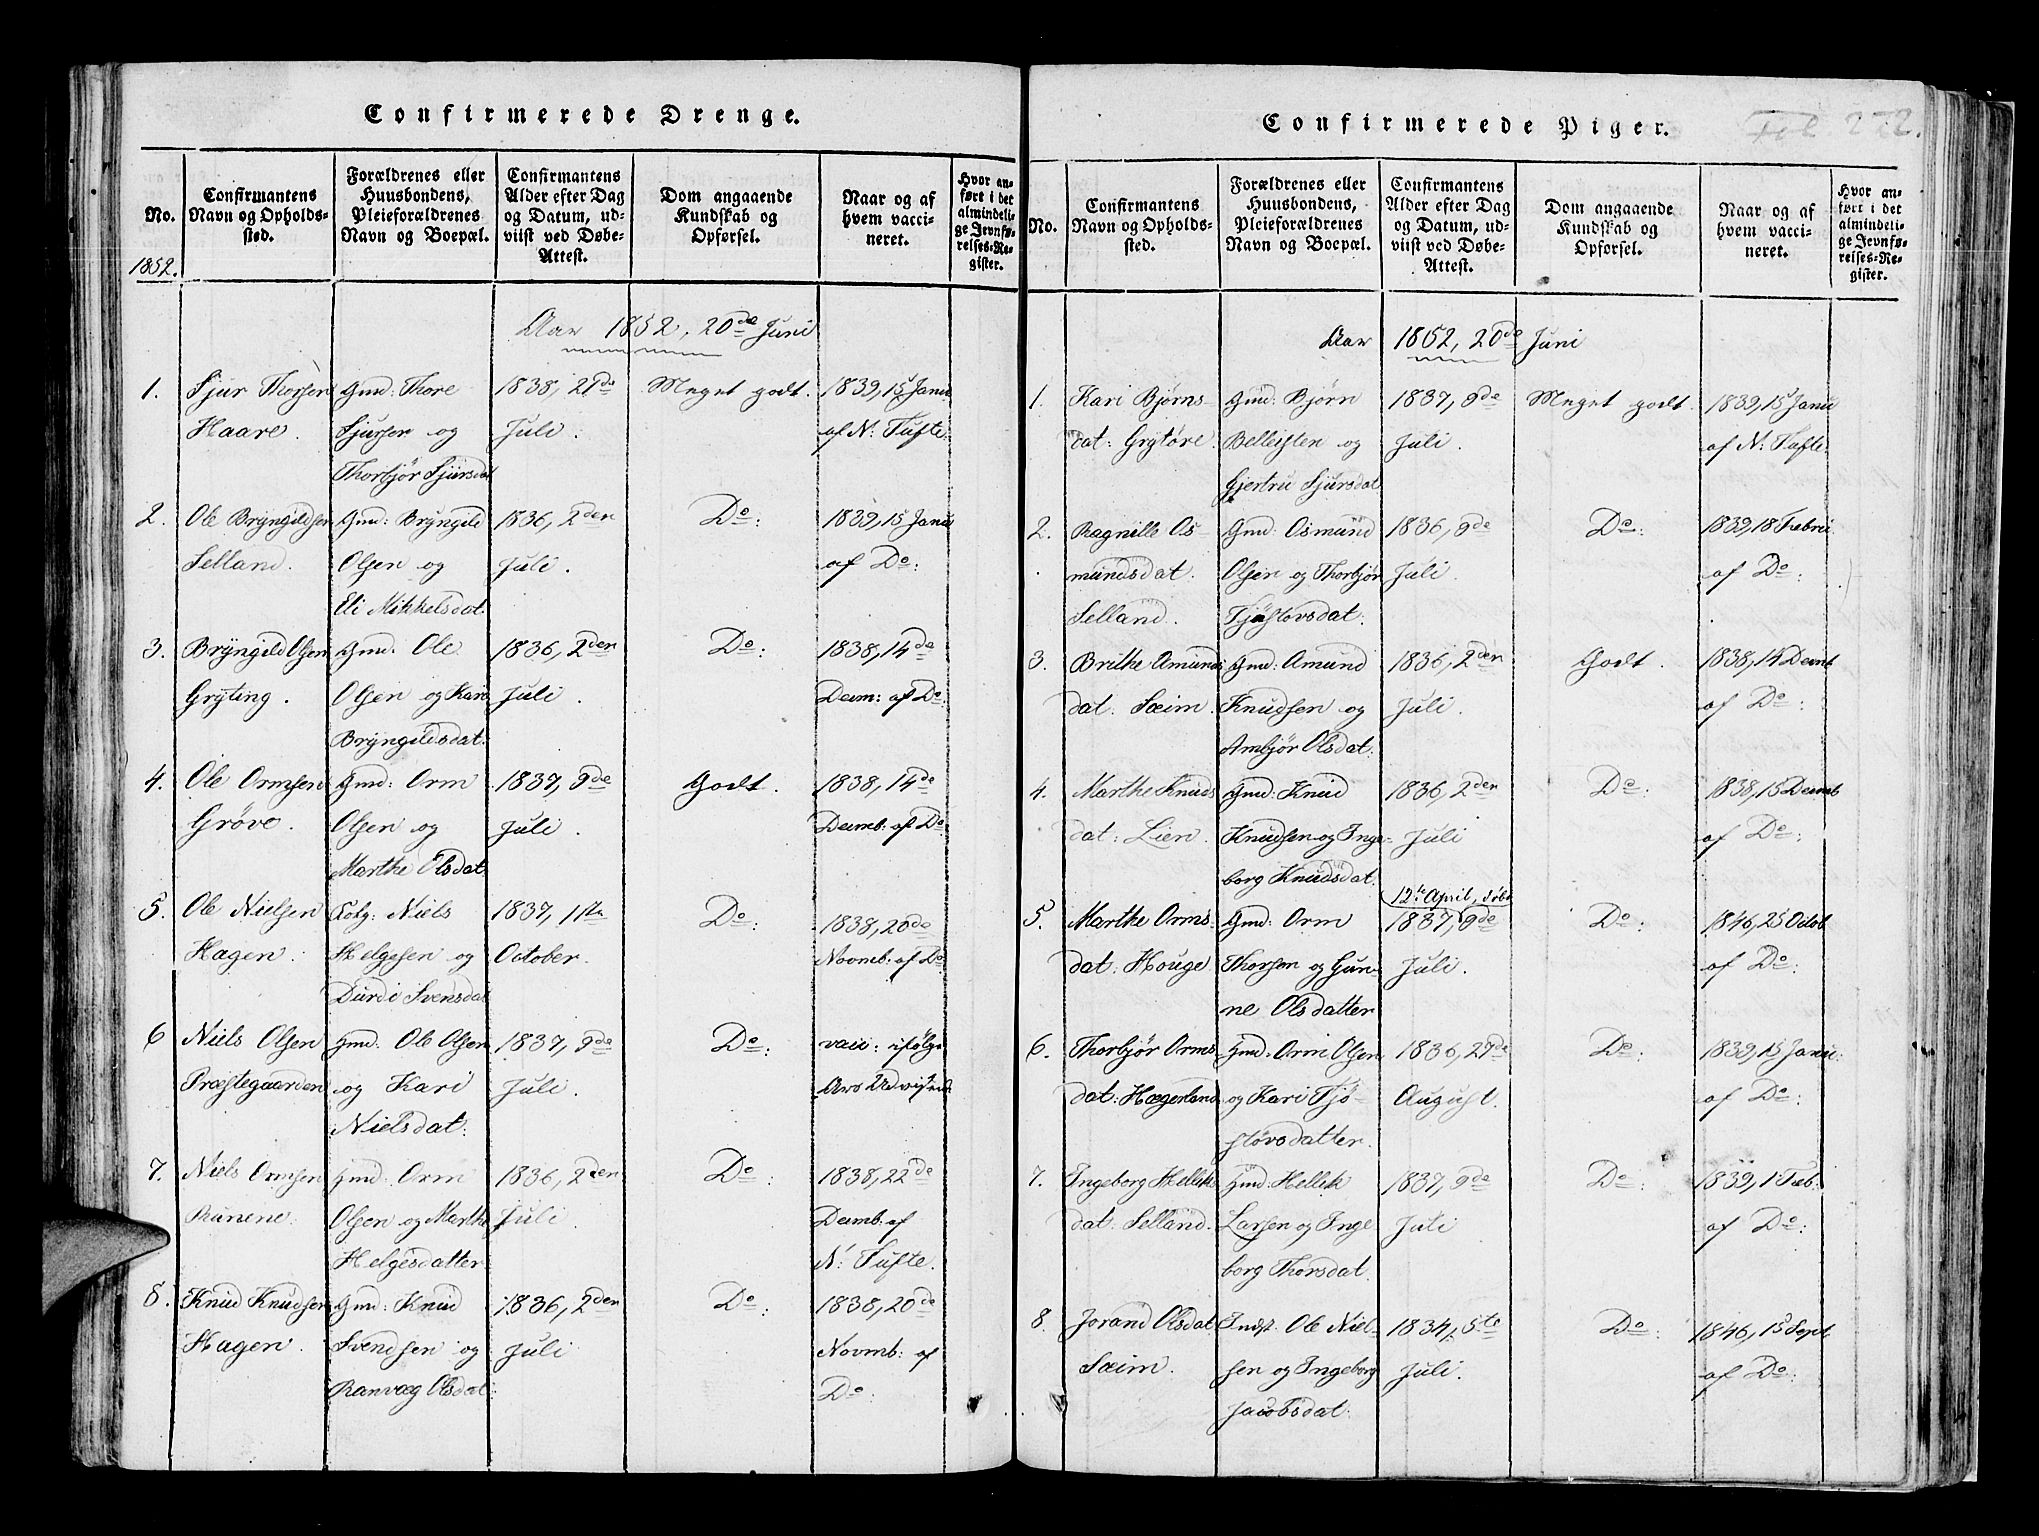 Confirmerede Drenge.
No.
1852.
Confirmantens
Navn og Opholds-
sted.
Forældrenes eller
Huusbondens,
Pleieforældrenes
Navn og Boepæl.
Confirmantens
Alder efter Dag
og Datum, ud-
viist ved Døbe-
Attest.
Dom angaaende
Kundskab og
Opførsel.
Naar og af
hvem vacci-
neret.
Hvor an-
ført i det
almindeli-
ge Jevnfø-
relses-Re-
gister.
Aar 1852, 20de Juni
1. Sjur Thorsen Gmd: Thore 1838, 21de Meget godt. 1839, 15 Janu
Haare. Sjursen og Juli. af N: Tufte.
Thorbjør Sjursdat
2. Ole Bryngildsen Gmd: Bryngild 1836, 2den Do: 1839, 15 Janu
Selland. Olsen og Juli. af Do:
Eli Mikkelsdat.
3. Bryngild Olsen Gmd: Ole 1836, 2den Do: 1838, 14de
Gryting. Olsen og Kari Juli. Decm: af Do:
Bryngildsdat:
4. Ole Ormsen Gmd: Orm 1837, 9de Godt. 1838, 14de
Grøve. Olsen og Juli. Decmb: af Do:
Marthe Olsdat
5. Ole Nielsen Niels 1837, 1ste Do: 1838, 20de
Hagen. Helgesen og October. Novmb. af Do:
Durdi Svensdat
6 Niels Olsen Gmd: Ole Olsen 1837, 9de Do: vacc: ifølge
Præstegaarden og Kari Juli.
Nielsdat:
7. Niels Ormsen Gmd: Orm 1836, 2den Do: 1838, 22de
Runene: Olsen og Marthe Juli. Decmb. af
Helgesdatter N: Tufte.
8. Knud Knudsen Gmd: Knud 1836, 2den Do: 1838, 20de
Hagen. Svendsen og Juli Novmb: af
Ranvæg Olsdat: Do:
Confirmerede Piger.
Fol 222.
No.
Confirmantens
Navn og Opholds-
sted.
Forældrenes eller
Huusbondens,
Pleieforældrenes
Navn og Boepæl.
Confirmantens
Alder efter Dag
og Datum, ud-
viist ved Døbe-
Attest.
Dom angaaende
Kundskab og
Opførsel.
Naar og af
hvem vacci-
neret.
Hvor an-
ført i det
almindeli-
ge Jevnfø-
relses-Re-
gister.
Aar 1852, 20de Juni
1. Kari Bjørns- Gmd: Bjørn 1837, 9de Meget godt. 1839, 15 Janu
dat: Grytøre. Belleisten og Juli. af N: Tufte:
Gjertru Sjursdat
2. Ragnille Os- Gmd: Osmund 1836, 9de Do: 1839, 18 Febru
mundsdat. Olsen og Thorbjør Juli. af Do:
Selland. Tjøstovsdat.
3. Brithe Amunds Gmd: Amund 1836, 2den Godt. 1838, 14 Decmb
dat. Sæim. Knudsen og Juli. af Do:
Ambjør Olsdat:
4. Marthe Knuds Gmd: Knud 1836, 2den Do: 1838, 15 Decmb
dat: Lien. Knudsen og Inge- Juli af Do:
borg Knudsdat.
12te April, døbt
5. Marthe Orms- Gmd: Orm 1837, 9de Do: 1846, 25 Octob
dat: Houge Thorsen og Gun- Juli. af Do:
ne Olsdatter
6. Thorbjør Orms- Gmd: Orm Olsen 1836, 27de Do: 1839, 15 Janu:
dat: Hægerland og Kari Tjø- August. af Do:
støvsdatter.
7. Ingeborg Helliks Gmd: Hellik 1837, 9de Do: 1839, 1 Feb:
dat: Selland. Larsen og Inge Juli af Do:
borg Thorsdat.
8. Jorand Olsdat Indst. Ole Niel- 1834, 5te Do: 1846, 15 Sept
Sæim. sen og Ingeborg Juli. af Do:
Jacobsdat: